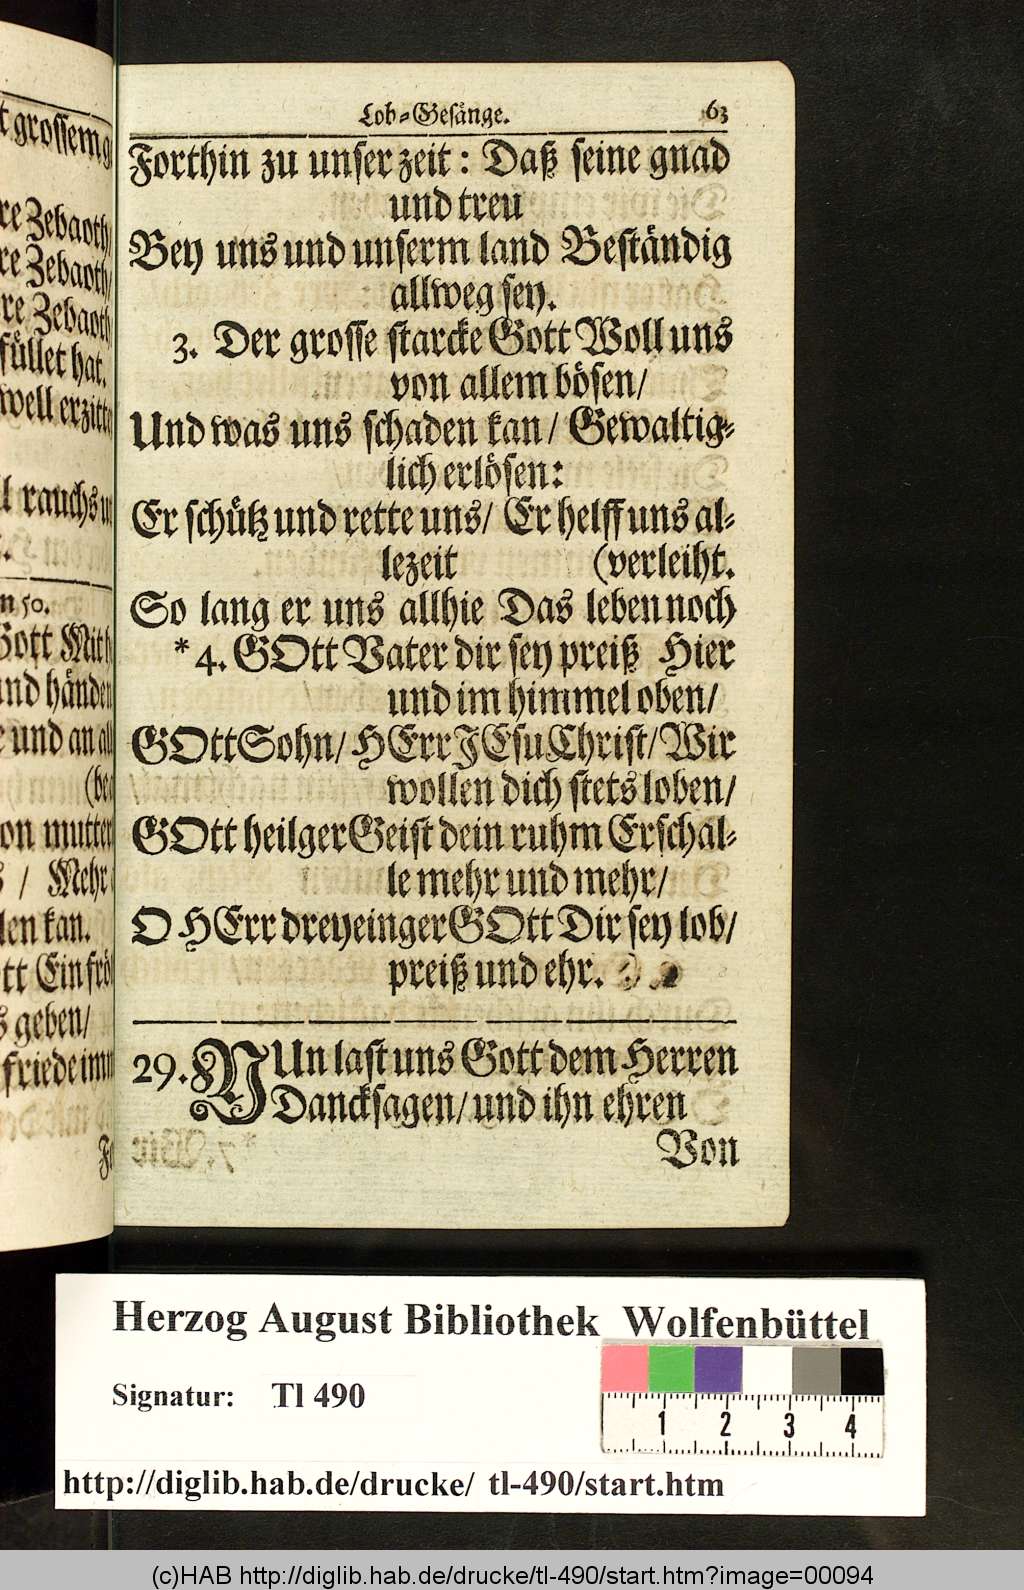 Lob-Gesänge. 63
Forthin zu unser zeit: Daß seine gnad
und treu
Bey uns und unserm land Beständig
allweg sey.
3. Der grosse starcke Gott Woll uns
von allem bösen/
Und was uns schaden kan/ Gewaltig-
lich erlösen:
Er schütz und rette uns/ Er helff uns al-
lezeit (verleiht.
So lang er uns allhie Das leben noch
*4. GOtt Vater dir sey preiß Hier
und im himmel oben/
GOtt Sohn/ HErr JEsu Christ/ Wir
wollen dich stets loben/
GOtt heilger Geist dein ruhm Erschal-
le mehr und mehr/
O HErr dreyeinger GOtt Dir sey lob/
preiß und ehr.
29. NUn last uns Gott dem Herren
Dancksagen/ und ihn ehren
Von
grossem
re Zebaoth/
re Zebaoth/
re Zebaoth
füllet hat.
well erzitte
rauchs
n 50.
Gott Mit
und händen
und an all
on mutter
/ Mehr
len kan.
tt Ein frö
geben/
friede imm
Fo
Herzog August Bibliothek Wolfenbüttel
Signatur: Tl 490
1 2 3 4
http://diglib.hab.de/drucke/ tl-490/start.htm
(c)HAB http://diglib.hab.de/drucke/tl-490/start.htm?image=00094